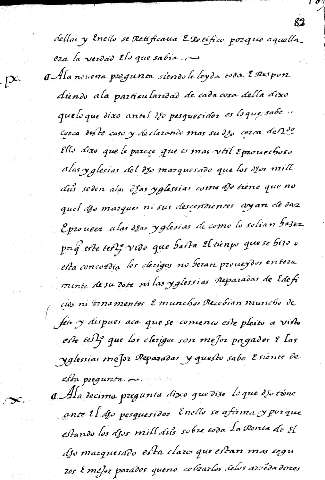 82
dellos y Enello se Retificava E Retifico porque aquella
era la verdad E lo que sabia
ix. A la novena pregunta siendole leyda toda E Respon
diendo a la particularidad de cada cosa della dixo
que lo que dixo antel dho pesquesidor es lo que sabe
cerca deste caso y declarando mas su dho cerca de
Ello dixo que le pareçe que es mas util E provechoso
a las yglesias del dho marquesado que los dhos mill
dus seden a las dhas yglesias como dho tiene que no
quel dho marques ni sus descendientes ayan de dar
E proveer a las dhas yglesias de como lo solian hazer
porq este testigo vido que hasta El tienpo que se hizo
esta concordia los clerigos no heran proveydos entera
mente de su dote ni las yglesias Reparadas de Edefi
cios ni ornamentos E munchos Recibian muncho de
feto y despues aca que se començo este pleito a visto
este testigo que los clerigos son mejor pagados E las
yglesias mejor Reparadas y questo sabe E siente de
esta pregunta
x. A la decima pregunta dixo que dize lo que dho tiene
ante El dho pesquesidor Enello se afirma y porque
estando los dhos mill dus sobre toda la Renta de El
dho marquesado esta claro que estan mas segu
ros E mejor parados que no cobrarlos de los arrendadores